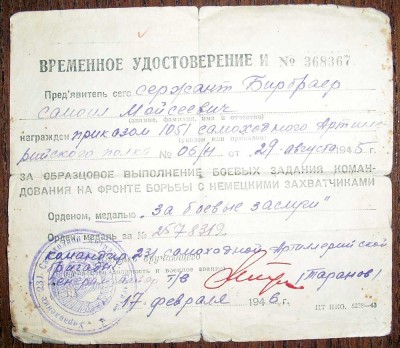 ВРЕМЕННОЕ УДОСТОВЕРЕНИЕ И № 368367
Пред'явитель сего сержант Бирбраер
Самоил Мойсеевич
(звание, фамилия, имя и отчество)
награжден приказом 1051 самоходного Артилле-
рийского полка № 06/н от 29 августа 1945 г.
ЗА ОБРАЗЦОВОЕ ВЫПОЛНЕНИЕ БОЕВЫХ ЗАДАНИЯ КОМАН-
ДОВАНИЯ НА ФРОНТЕ БОРЬБЫ С НЕМЕЦКИМИ ЗАХВАТЧИКАМИ
Орденом, медалью "За боевые заслуги"
Орден медаль за №
командир 231 самоходной Артиллерийской
бригады
генерал майор т/в (Таранов)
17 февраля 1946 г.